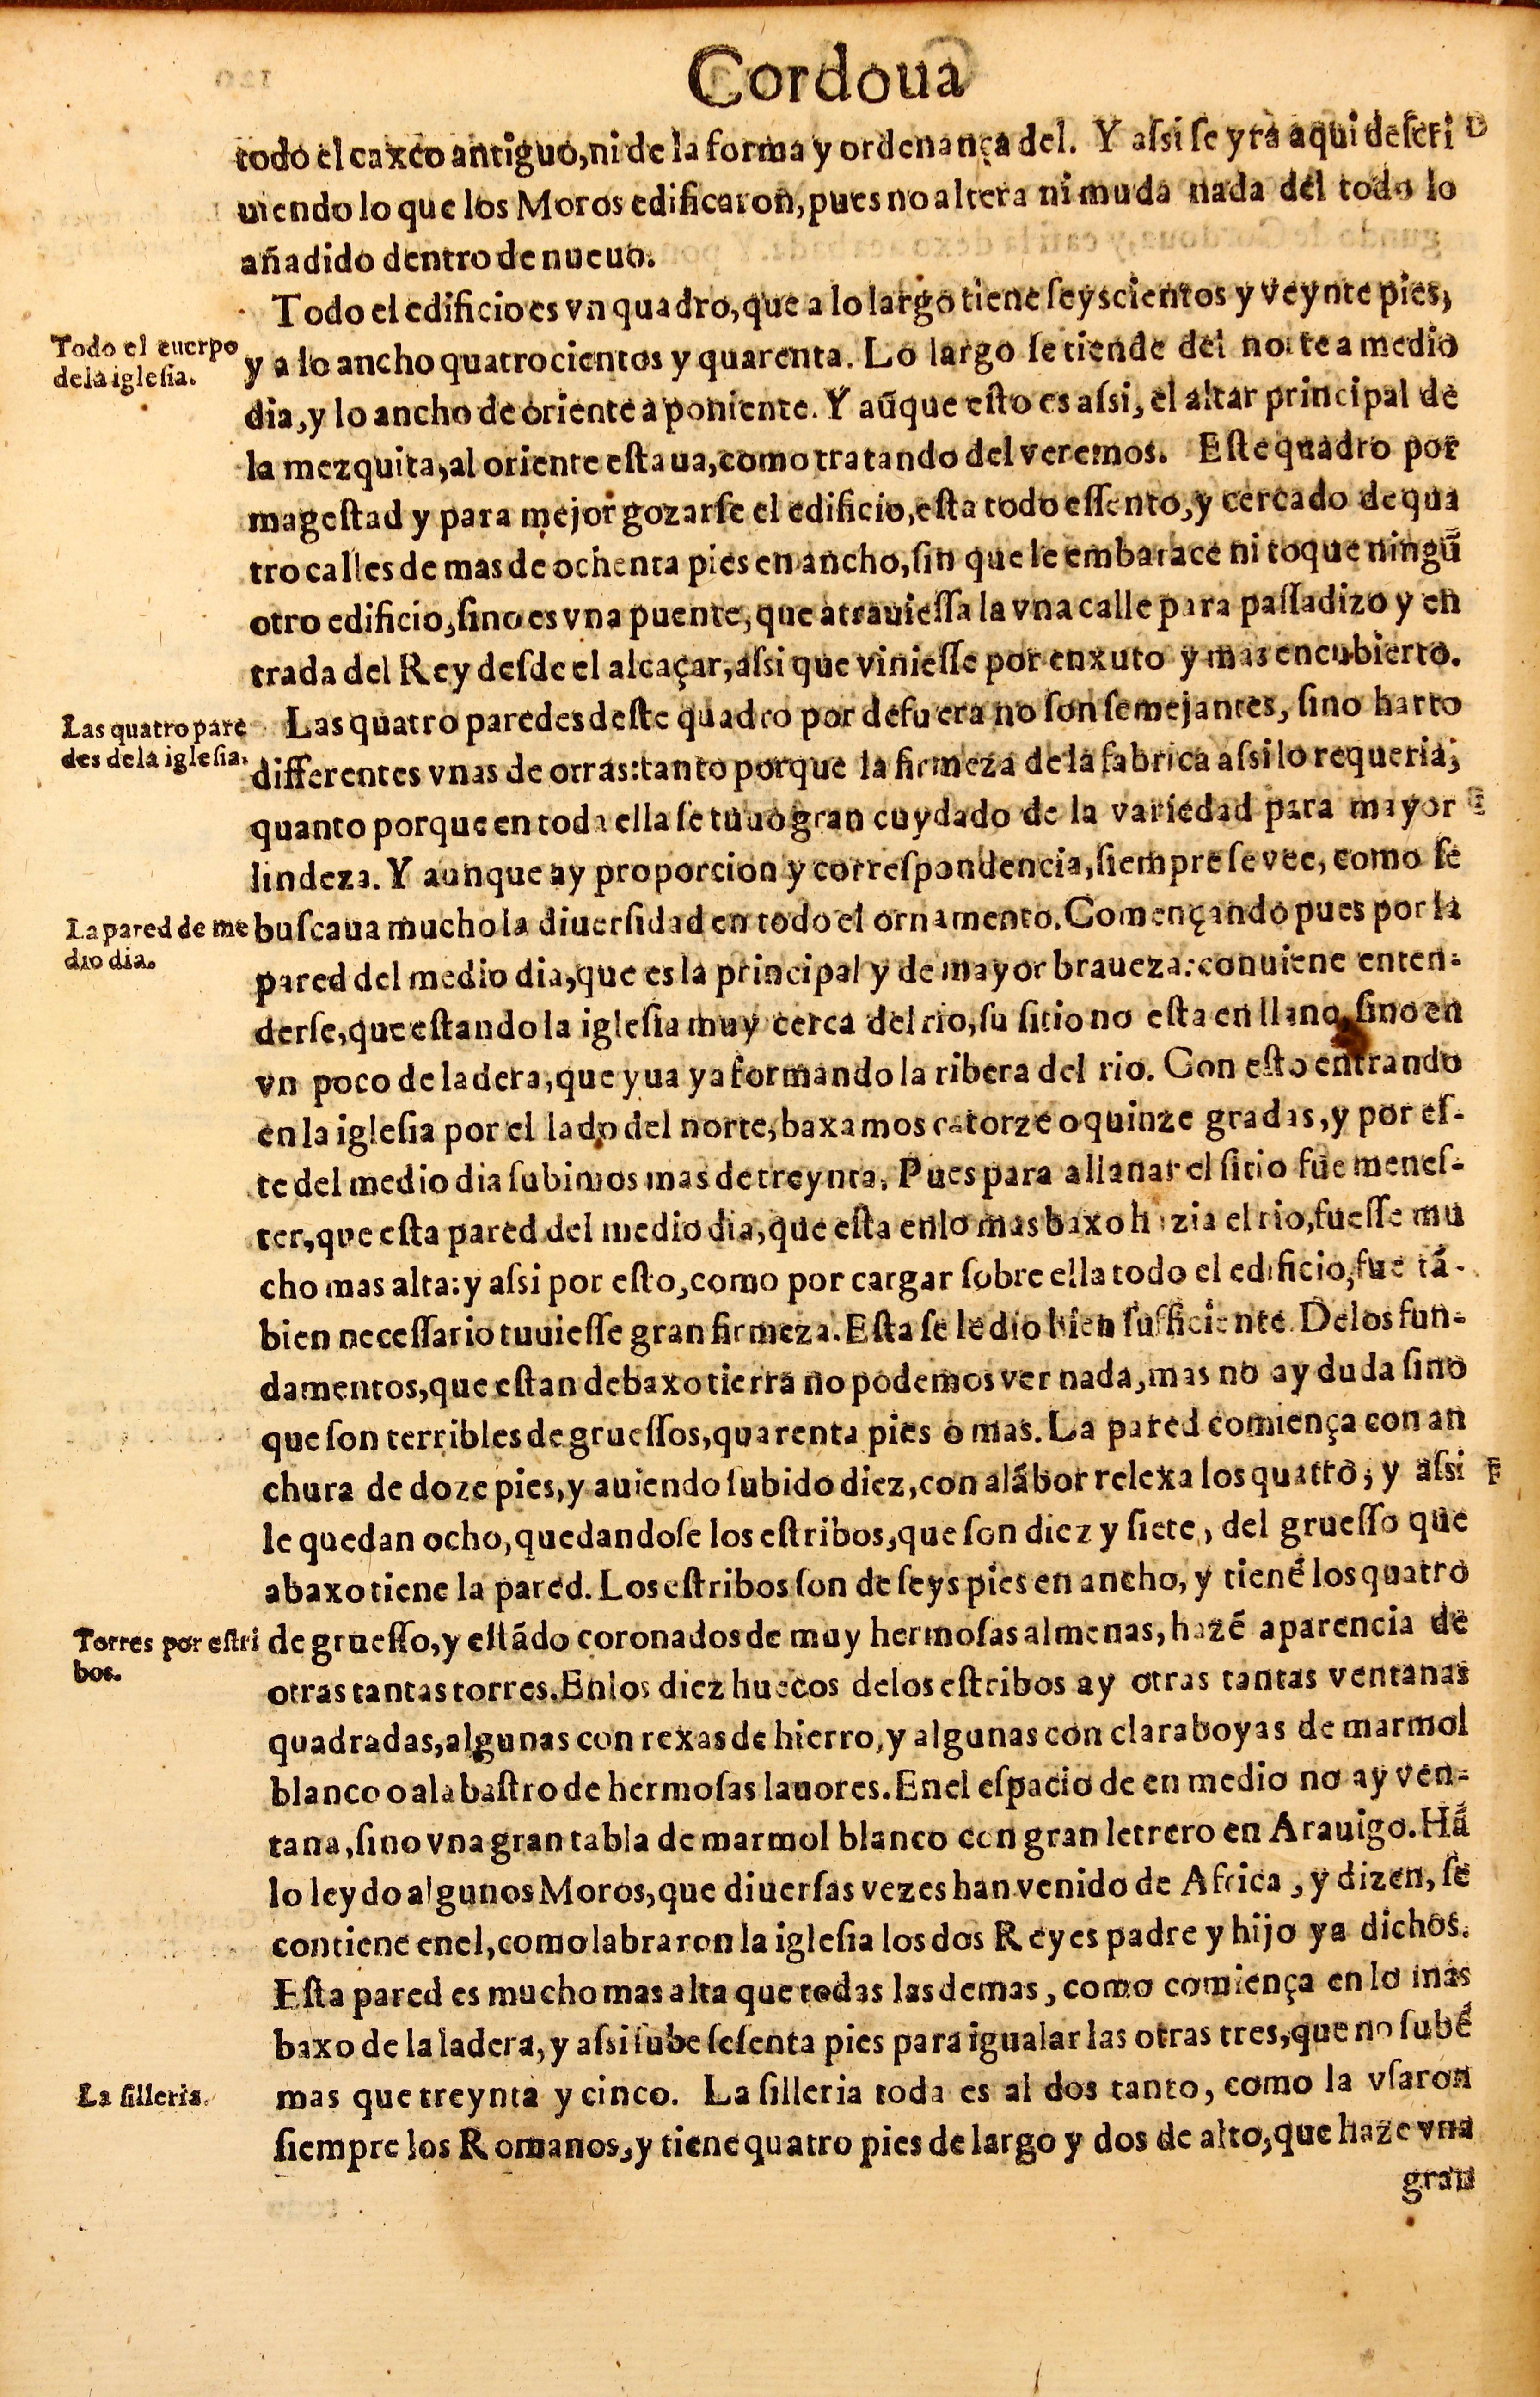 Cordoua
todo el caxco antiguo, ni de la forma y ordenança del. Y aſsi ſe yra aqui deſcri D
uiendo lo que los Moros edificaron, pues no altera ni muda nada del todo lo
añadido dentro de nueuo.
Todo el edificio es vn quadro, que a lo largo tiene ſeyscientos y veynte pies,
Todo el cuerpo
dela igleſia.
y a lo ancho quatrocientos y quarenta. Lo largo ſe tiende del norte a medio
dia, y lo ancho de oriente a poniente. Y aũque eſto es aſsi, el altar principal de
la mezquita, al oriente eſtaua, como tratando del veremos. Eſte quadro por
mageſtad y para mejor gozarſe el edificio, eſta todo eſſento, y cercado de qua
tro calles de mas de ochenta pies en ancho, ſin que le embarace ni toque ningũ
otro edificio, ſino es vna puente, que atrauieſſa la vna calle para paſſadizo y en
trada del Rey deſde el alcaçar, aſsi que vinieſſe por enxuto y mas encubierto.
Las quatro pare
des de la igleſia.
Las quatro paredes deſte quadro por defuera no ſon ſemejantes, ſino harto
differentes vnas de otras: tanto porque la firmeza de la fabrica aſsi lo requeria;
quanto porque en toda ella ſe tuuo gran cuydado de la variedad para mayor E
lindeza. Y aunque ay proporcion y correſpondencia, ſiempre ſe vee, como ſe
La pared de me
dio dia.
buſcaua mucho la diuerſidad en todo el ornamento. Començando pues por la
pared del medio dia, que es la principal y de mayor braueza: conuiene enten-
derſe, que eſtando la igleſia muy cerca del rio, ſu ſitio no eſta en llano, ſino en
vn poco de ladera, que yua ya formando la ribera del rio. Con eſto entrando
en la igleſia por el lado del norte, baxamos catorze o quinze gradas, y por eſ-
te del medio dia ſubimos mas de treynta. Pues para allanar el ſitio fue meneſ-
ter, que eſta pared del medio dia, que eſta en lo mas baxo hazia el rio, fueſſe mu
cho mas alta: y aſsi por eſto, como por cargar ſobre ella todo el edificio, fue tã-
bien neceſſario tuuieſſe gran firmeza. Eſta ſe le dio bien ſufficiente. Delos fun-
damentos, que eſtan debaxo tierra no podemos ver nada, mas no ay duda ſino
que ſon terribles de grueſſos, quarenta pies o mas. La pared comiença con an
chura de doze pies, y auiendo ſubido diez, con alãbor relexa los quatro, y aſsi F
le quedan ocho, quedandoſe los eſtribos, que ſon diez y ſiete, del grueſſo que
abaxo tiene la pared. Los eſtribos ſon de ſeys pies en ancho, y tienẽ los quatro
Torres por eſtri
bos.
de grueſſo, y eſtãdo coronados de muy hermoſas almenas, hazẽ aparencia de
otras tantas torres. En los diez huecos delos eſtribos ay otras tantas ventanas
quadradas, algunas con rexas de hierro, y algunas con claraboyas de marmol
blanco o alabaſtro de hermoſas lauores. En el eſpacio de en medio no ay ven-
tana, ſino vna gran tabla de marmol blanco con gran letrero en Arauigo. Hã
lo leydo algunos Moros, que diuerſas vezes han venido de Africa, y dizen, ſe
contiene enel, como labraron la igleſia los dos Reyes padre y hijo ya dichos.
Eſta pared es mucho mas alta que todas las demas, como comiença en lo mas
baxo de la ladera, y aſsi ſube ſeſenta pies para igualar las otras tres, que no ſubẽ
La ſilleria.
mas que treynta y cinco. La ſilleria toda es al dos tanto, como la vſaron
ſiempre los Romanos, y tiene quatro pies de largo y dos de alto, que haze vna
gran